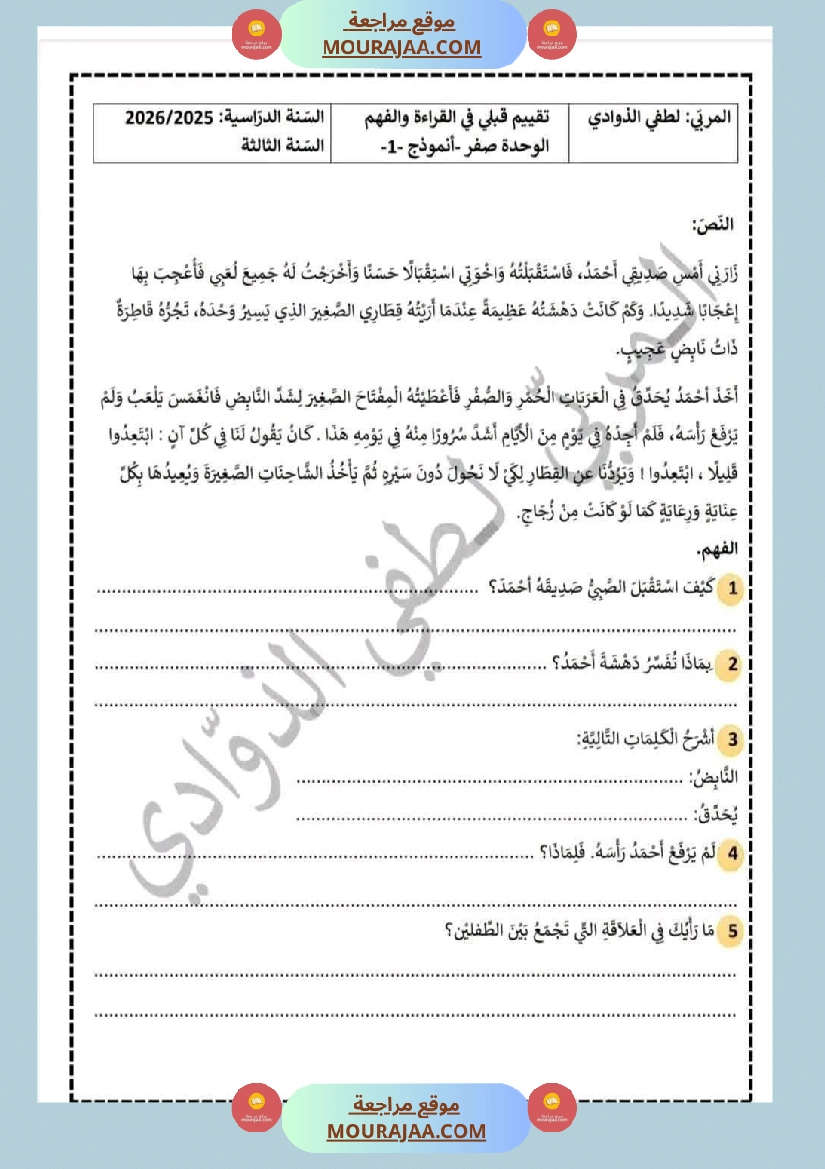 موقع مراجعة
MOURAJAA.COM
المربّي: لطفي الذوادي
تقييم قبلي في القراءة والفهم
الوحدة صفر -أنموذج -1-
السّنة الدرّاسية: 2026/2025
السّنة الثالثة
النّصّ:
زَارَنِي أَمْسِ صَدِيقِي أَحْمَدُ، فَاسْتَقْبَلْتُهُ وَاخْوَتِي اسْتِقْبَالًا حَسَنًا وَأَخْرَجْتُ لَهُ جَمِيعَ لُعَبِي فَأُعْجِبَ بِهَا
إِعْجَابًا شَدِيدًا. وَكَمْ كَانَتْ دَهْشَتُهُ عَظِيمَةً عِنْدَمَا أَرَيْتُهُ قِطَارِي الصَّغِيرَ الذِي يَسِيرُ وَحْدَهُ، تَجُرُّهُ قَاطِرَةٌ
ذَاتُ نَابِضٍ عَجِيبٍ.
أَخَذَ أَحْمَدُ يُحَدِّقُ فِي الْعَرَبَاتِ الْحُمْرِ وَالصُّفْرِ فَأَعْطَيْتُهُ الْمِفْتَاحَ الصَّغِيرَ لِشَدِّ النَّابِضِ فَانْغَمَسَ يَلْعَبُ وَلَمْ
يَرْفَعْ رَأْسَهُ، فَلَمْ أَجِدْهُ فِي يَوْمٍ مِنَ الْأَيَّامِ أَشَدَّ سُرُورًا مِنْهُ فِي يَوْمِهِ هَذَا . كَانُ يَقُولُ لَنَا فِي كُلِّ آنٍ : ابْتَعِدُوا
قَلِيلًا ، ابْتَعِدُوا ! وَيَرُدُّنَا عَنِ القِطَارِ لِكَيْ لَا نَحُولَ دُونَ سَيْرِهِ ثُمَّ يَأْخُذُ الشَّاحِنَاتِ الصَّغِيرَةَ وَيُعِيدُهَا بِكُلِّ
عِنَايَةٍ وَرِعَايَةٍ كَمَا لَوْ كَانَتْ مِنْ زُجَاجٍ.
الفهم.
1 كَيْفَ اسْتَقْبَلَ الصَّبِيُّ صَدِيقَهُ أَحْمَدَ؟ ................................................
................................................
2 بِمَاذَا تُفَسِّرُ دَهْشَةَ أَحْمَدُ؟ ................................................
................................................
3 أَشْرَحُ الْكَلِمَاتِ التَّالِيَّةِ:
النَّابِضُ: ................................................
يُحَدِّقُ: ................................................
4 لَمْ يَرْفَعْ أَحْمَدُ رَأْسَهُ. فَلِمَاذَا؟ ................................................
................................................
5 مَا رَأْيُكَ فِي الْعَلاَقَةِ التِّي تَجْمَعُ بَيْنَ الطِّفليْن؟
................................................
................................................
المربّي لطفي الذوّادي
موقع مراجعة
MOURAJAA.COM